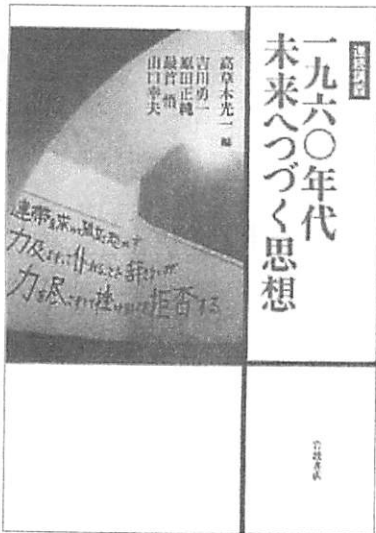 連続講義
一九六〇年代
未来へつづく思想
高草木光一 編
吉川勇一
原田正純
最首 悟
山口幸夫
連帯を求めて孤立を恐れず
力及ばずして仆れることを辞さないが
力を尽さずして挫けることを拒否する
岩波書店